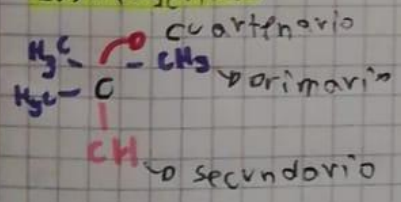 cuartenario
H₃C
CH₃ primario
H₃C C
CH secundario